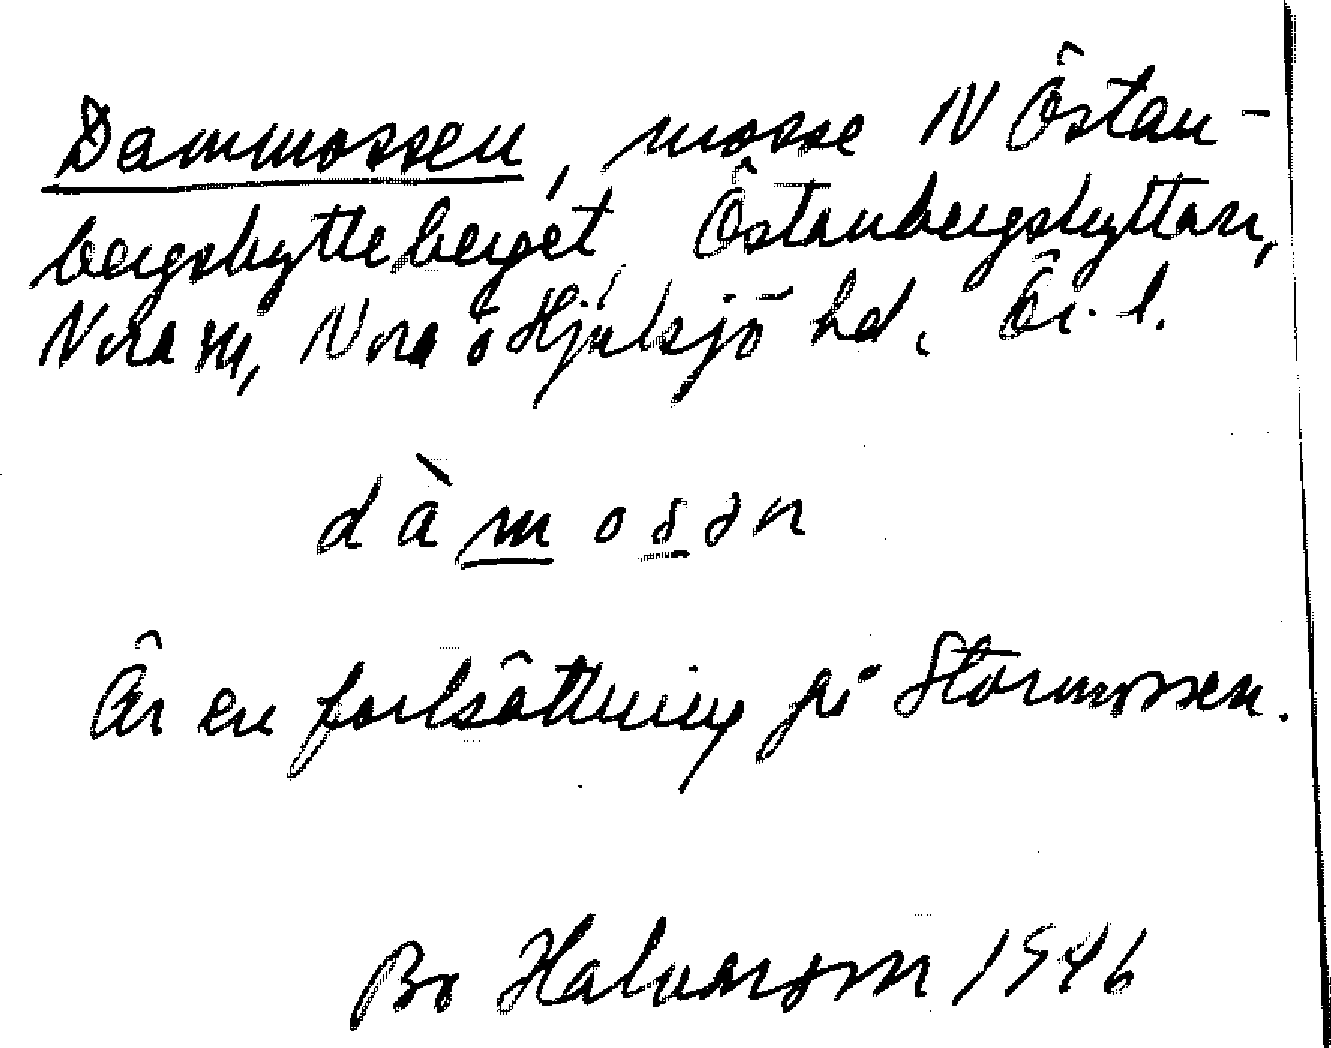 Dammossen, mosse N Östan-
bergshytteberget, Östanbergshyttan,
Nora sn, Nora o Hjulsjö hd. Ör. l.
dàmosən
Är en fortsättning på Stormossen.
Bo Halvarson 1946